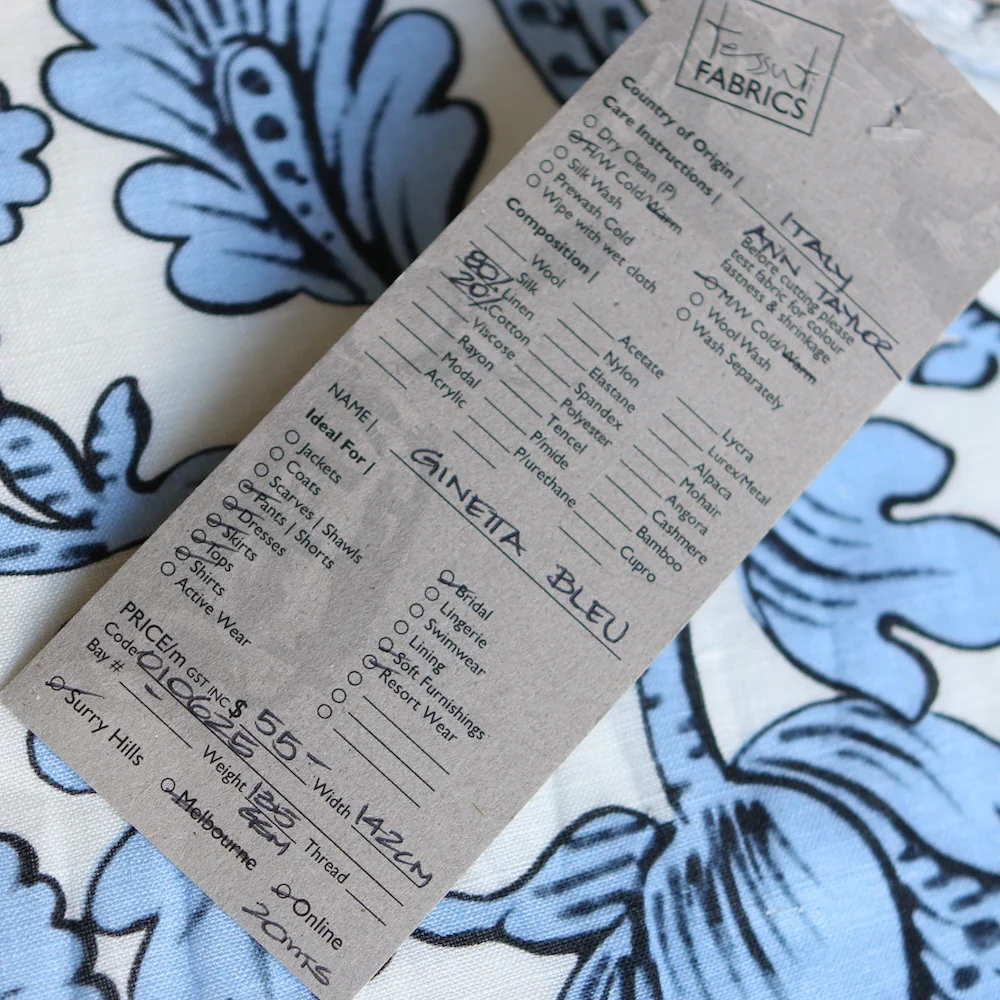 Tessuti
FABRICS
Country of Origin | ITALY
Care Instructions | ANN TAYLOR
Dry Clean (P)
H/W Cold/Warm
Silk Wash
Prewash Cold
Wipe with wet cloth
Before cutting please
test fabric for colour
fastness & shrinkage
M/W Cold/Warm
Wool Wash
Wash Separately
Composition |
Wool
Silk
80% Linen
20% Cotton
Viscose
Rayon
Modal
Acrylic
Acetate
Nylon
Elastane
Spandex
Polyester
Tencel
P/mide
P/urethane
Lycra
Lurex/Metal
Alpaca
Mohair
Angora
Cashmere
Bamboo
Cupro
NAME | GINETTA BLEU
Ideal For |
Jackets
Coats
Scarves | Shawls
Pants | Shorts
Dresses
Skirts
Tops
Shirts
Active Wear
Bridal
Lingerie
Swimwear
Lining
Soft Furnishings
Resort Wear
PRICE/m GST INC $ 55-
Code 010625 Width 142CM
Bay # Weight GSM Thread
Surry Hills
Melbourne
Online
20MTS